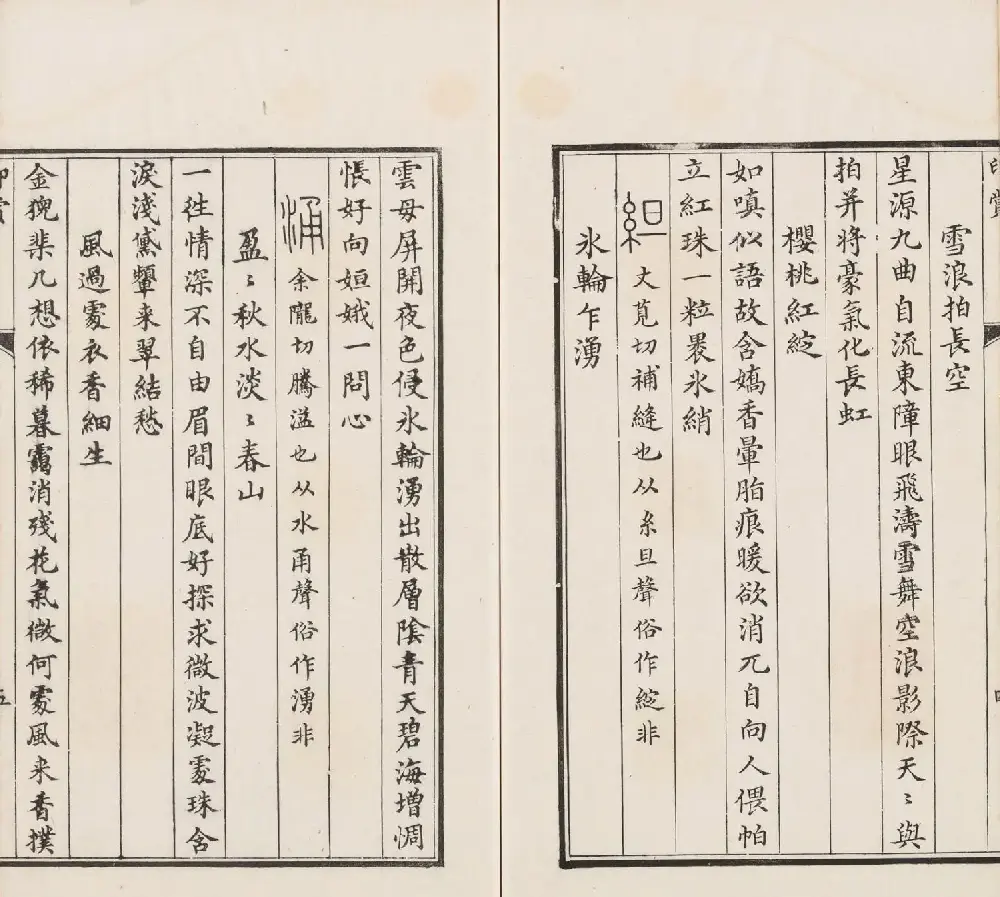 雪浪拍長空
星源九曲自流東障眼飛濤雪舞空浪影際天〻與
拍并將豪氣化長虹
櫻桃紅綻
如嗔似語故含嬌香暈脂痕暖欲消兀自向人偎帕
立紅珠一粒褁氷綃
組 丈莧切補縫也从糸旦聲俗作綻非
氷輪乍湧
雲母屏開夜色侵氷輪湧出散層陰青天碧海增惆
悵好向姮娥一問心
涌 余隴切騰溢也从水甬聲俗作湧非
盈〻秋水淡〻春山
一徃情深不自由眉間眼底好探求微波凝處珠含
淚淺黛顰来翠結愁
風過處衣香細生
金猊棐几想依稀暮靄消殘花氣微何處風来香撲